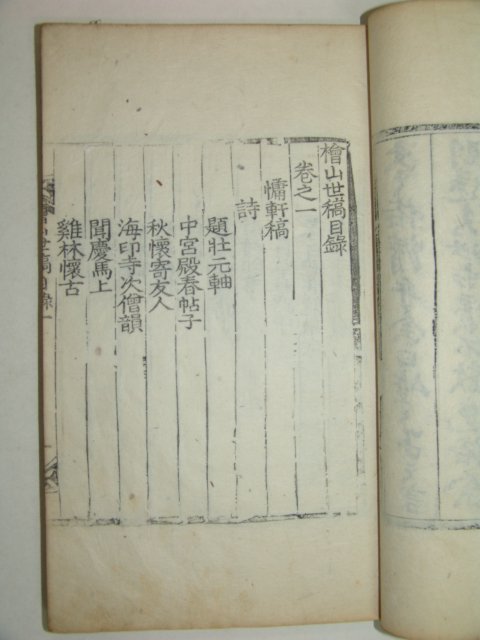 檜山世稿目錄
卷之一
慵軒稿
詩
題壯元軸
中宮殿春帖子
秋懷寄友人
海印寺次僧韻
聞慶馬上
雞林懷古
山世稿目錄一